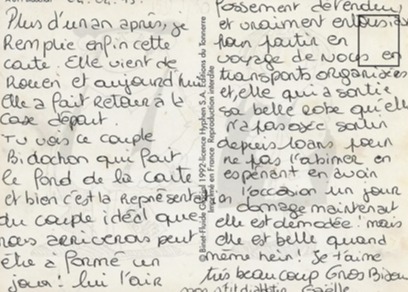 Plus d'un an après, je
Remplie enfin cette
carte. Elle vient de
Rouen et aujourd'hui
Elle a fait retour à la
case départ.
Tu vois ce couple
Bidochon qui fait
le fond de la carte
et bien c'est la Représentat
du couple idéal que
nous arriverons peut
être à formé un
jour! lui l'air
Possement détendu
et vraiment
pour partir en
voyage de nous en
transports organisées
et, elle qui a sortie
sa belle robe qu'elle
n'a pas osée sortir
depuis 10 ans pour
ne pas l'abimer en
espérant en avoir
l'occasion un jour
domage maintenant
elle est démodée! mais
elle est belle quand
même hein! Je t'aime
très beaucoup Gros Bisou
Gaëlle
© Binet-Fluide Glacial 1992-licence Hyphen S.A. Editions du Tonnerre
Imprimé en France Reproduction interdite